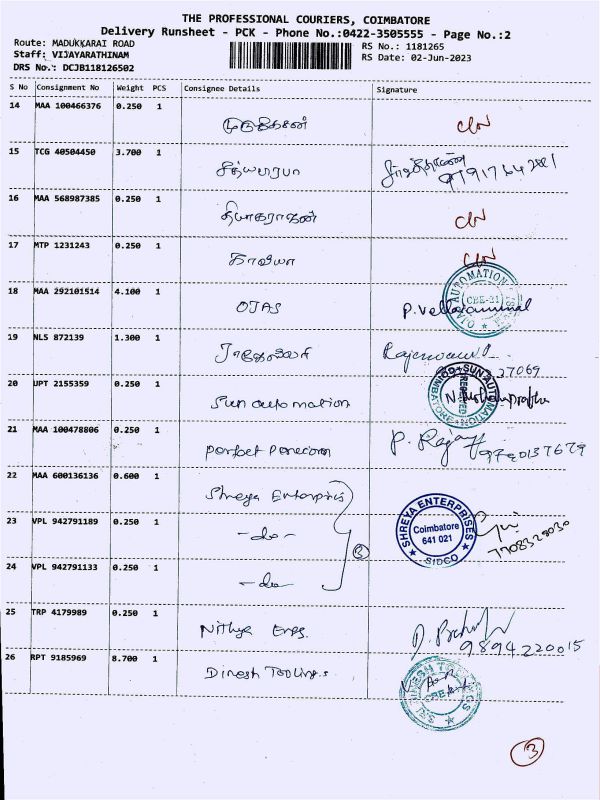 THE PROFESSIONAL COURIERS, COIMBATORE
Delivery Runsheet - PCK - Phone No.:0422-3505555 - Page No.:2
Route: MADUKKARAI ROAD RS No.: 1181265
Staff: VIJAYARATHINAM RS Date: 02-Jun-2023
DRS No.: DCJB118126502
S No Consignment No Weight PCS Consignee Details Signature
14 MAA 100466376 0.250 1 முருகேசன்
15 TCG 40504450 3.700 1 சத்யபிரபா
16 MAA 568987385 0.250 1 தியாகராஜன்
17 MTP 1231243 0.250 1 காவியா
18 MAA 292101514 4.100 1 OJAS
OJAS AUTOMATION CBE-21
19 NLS 872139 1.300 1 ராஜேஸ்வரி
27069
20 UPT 2155359 0.250 1 Sun automation
SUN AUTOMATION COIMBATORE RECEIVED
21 MAA 100478806 0.250 1 perfect Ponecom P. Raja
22 MAA 600136136 0.600 1 Shreya Enterprises
SHREYA ENTERPRISES Coimbatore 641 021 SIDCO
7708320030
23 VPL 942791189 0.250 1 -do-
3
24 VPL 942791133 0.250 1 -do-
25 TRP 4179989 0.250 1 Nithya Engg.
9894220015
26 RPT 9185969 8.700 1 Dinesh Toolings
SRI DINESH TOOLINGS CBE
3